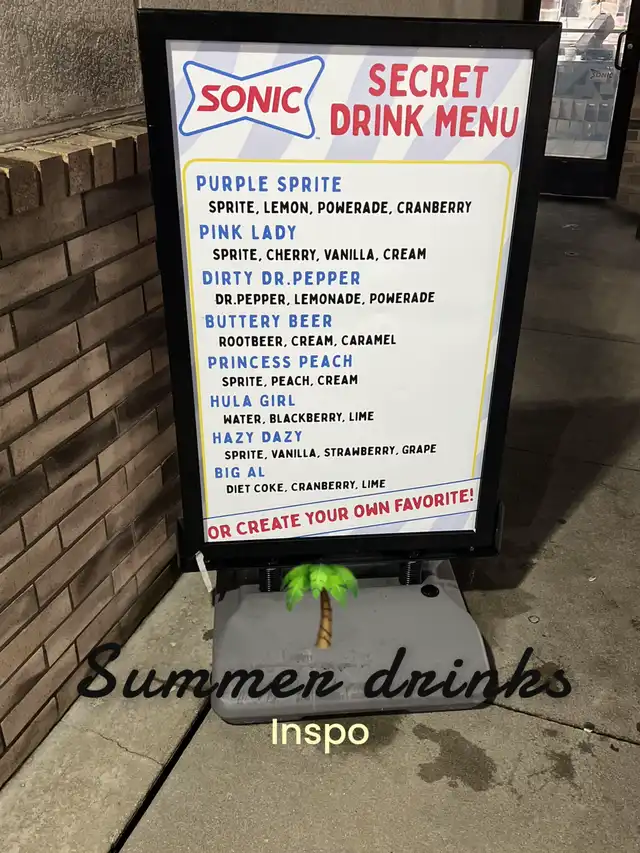 SONIC
SECRET
DRINK MENU
PURPLE SPRITE
SPRITE, LEMON, POWERADE, CRANBERRY
PINK LADY
SPRITE, CHERRY, VANILLA, CREAM
DIRTY DR.PEPPER
DR.PEPPER, LEMONADE, POWERADE
BUTTERY BEER
ROOTBEER, CREAM, CARAMEL
PRINCESS PEACH
SPRITE, PEACH, CREAM
HULA GIRL
WATER, BLACKBERRY, LIME
HAZY DAZY
SPRITE, VANILLA, STRAWBERRY, GRAPE
BIG AL
DIET COKE, CRANBERRY, LIME
OR CREATE YOUR OWN FAVORITE!
Summer drinks
Inspo